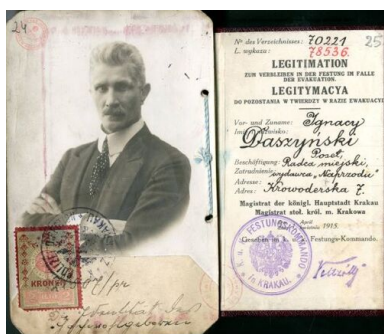 24
KRONEN
Nº des Verzeichnisses: 70221
25
L. wykazu: 78536.
LEGITIMATION
ZUM VERBLEIBEN IN DER FESTUNG IM FALLE
DER EVAKUATION.
LEGITYMACYA
DO POZOSTANIA W TWIERDZY W RAZIE EWAKUACYI
Vor- und Zuname: Ignacy
Daszyński
Poseł,
Beschäftigung: Radca miejski,
Zatrudnienie: wydawca „Naprzodu"
Adresse: Krowoderska 7.
Adres:
Magistrat der königl. Hauptstadt Krakau
Magistrat stoł. król. m. Krakowa
April
1915.
Gesehen im k. Festungs-Kommando.
FESTUNGSKOMMANDO
IN KRAKAU